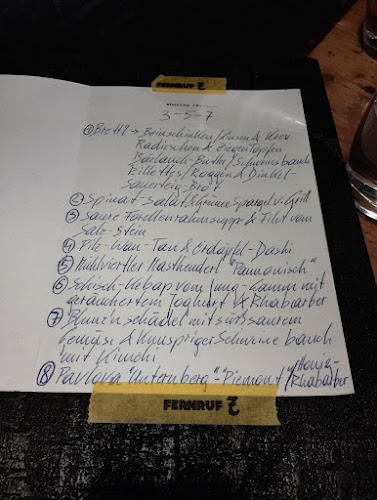 FERNRUF 7
3-5-7
① Brettl → Beinschinken/Kren &
Radieschen & Ziegentopfen
Bärlauch-Butter/Schweinsbauch
Rillettes/Roggen & Dinkel-
Sauerteig-Brot
② Spinat-Salat & Grüner Spargel v. Grill
③ Saure Forellenrahmsuppe & Filet vom
Salz-Stein
④ Pilz-Wan-Tan & Erdäpfel-Dashi
⑤ Mühlviertler Masthenderl "Pannonisch"
⑥ Schisch-Kebap vom Jung-Lamm mit
geräuchertem Joghurt & Rhabarber
⑦ Blunznschädel mit süßsaurem
Gemüse & knuspriger Schweinebauch
mit Kimchi
⑧ Pavlova "Unternberg" - Piemont/Honig-
Rhabarber
FERNRUF 7